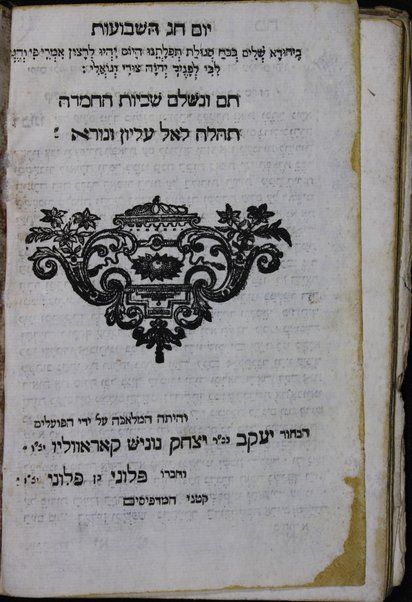 יום חג השבועות
ביחודא שלים בכח סגולת תפלתנו היום יהיו לרצון אמרי פי והגיון
לבי לפניך יהוה צורי וגואלי :
תם ונשלם שכיות החמדה
תהלה לאל עליון ונורא :
והיתה המלאכה על ידי הפועלים
הבחור יעקב בכ״ר יצחק נוניש קאראווליו יצ״ו
וחברו פלוני בן פלוני יצ״ו
קטני המדפיסים